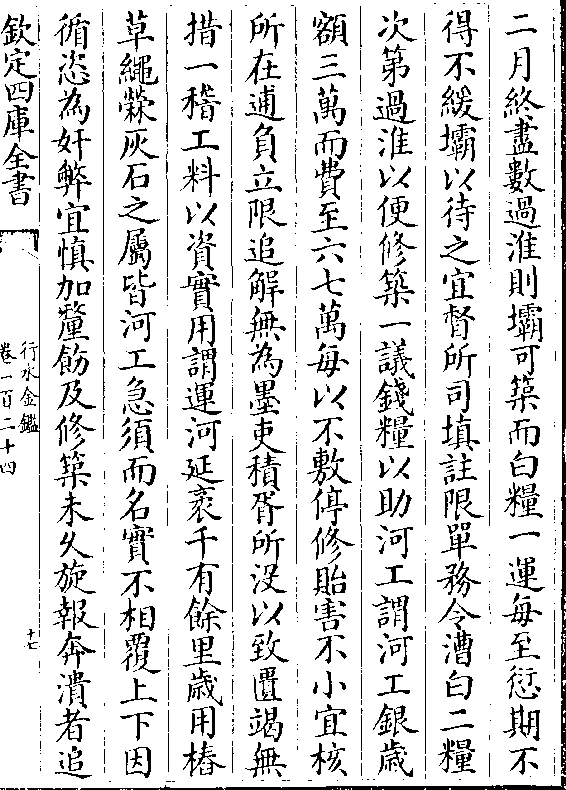 二月終盡數過淮則壩可築而白糧一運每至愆期不
得不緩壩以待之宜督所司填註限單務令漕白二糧
次第過淮以便修築一議錢糧以助河工謂河工銀歲
額三萬而費至六七萬每以不敷停修貽害不小宜核
所在逋負立限追解無為墨吏積胥所沒以致匱竭無
措一稽工料以資實用謂運河延袤千有餘里歲用樁
草繩檾灰石之屬皆河工急須而名實不相覆上下因
循恣為奸弊宜慎加釐飭及修築未久旋報奔潰者追
欽定四庫全書
行水金鑑
卷一百二十四
十七